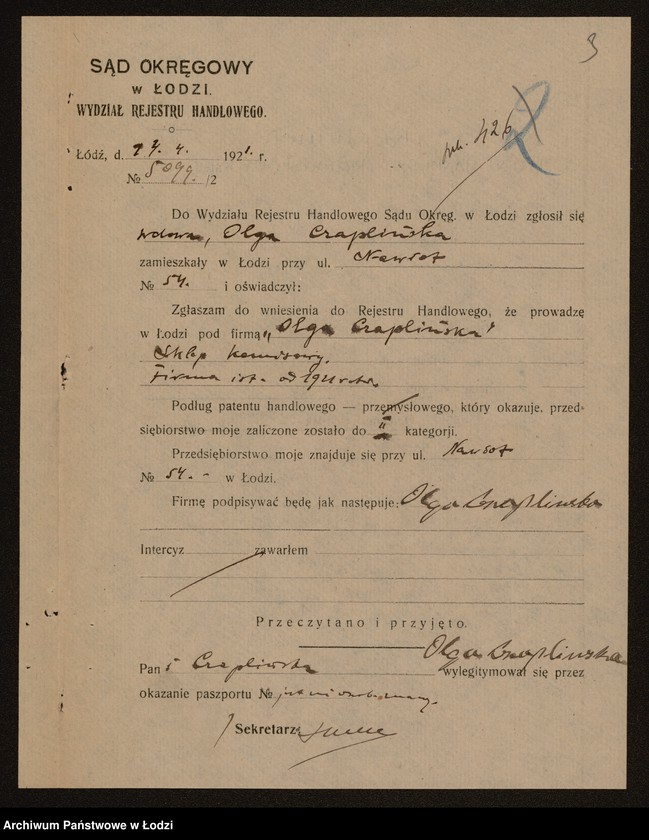 3
SĄD OKRĘGOWY
W ŁODZI.
WYDZIAŁ REJESTRU HANDLOWEGO.
426
2
Łódź, d. 4. 1921. r.
№ 5099. /2
Do Wydziału Rejestru Handlowego Sądu Okręg. w Łodzi zgłosił się
wdowa, Olga Czaplińska
zamieszkały w Łodzi przy ul. Nawrot
№ 54. i oświadczył:
Zgłaszam do wniesienia do Rejestru Handlowego, że prowadzę
w Łodzi pod firmą „Olga Czaplińska"
Sklep komisowy.
Firma ist. od 1921 roku.
Podług patentu handlowego — przemysłowego, który okazuje, przed-
siębiorstwo moje zaliczone zostało do II kategorji.
Przedsiębiorstwo moje znajduje się przy ul. Nawrot
№ 54. - w Łodzi.
Firmę podpisywać będę jak następuje: Olga Czaplinska
Intercyz zawarłem
Przeczytano i przyjęto.
Olga Czaplinska
Pan i Czaplińska wylegitymował się przez
okazanie paszportu №
Sekretarz
Archiwum Państwowe w Łodzi